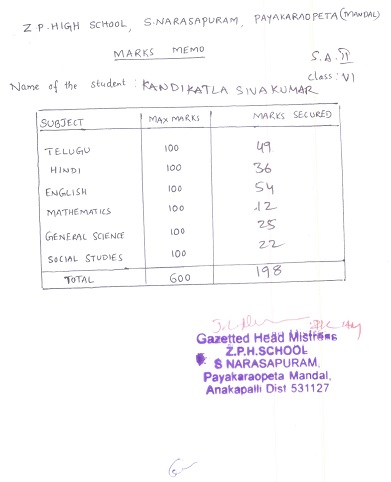 Z.P.HIGH SCHOOL, S.NARASAPURAM, PAYAKARAOPETA (MANDAL)
MARKS MEMO
S.A. II
Class: VI
Name of the student: KANDIKATLA SIVA KUMAR
SUBJECT MAX MARKS MARKS SECURED
TELUGU 100 49
HINDI 100 36
ENGLISH 100 54
MATHEMATICS 100 12
GENERAL SCIENCE 100 25
SOCIAL STUDIES 100 22
TOTAL 600 198
Gazetted Head Mistress
Z.P.H.SCHOOL
S NARASAPURAM,
Payakaraopeta Mandal,
Anakapalli Dist 531127